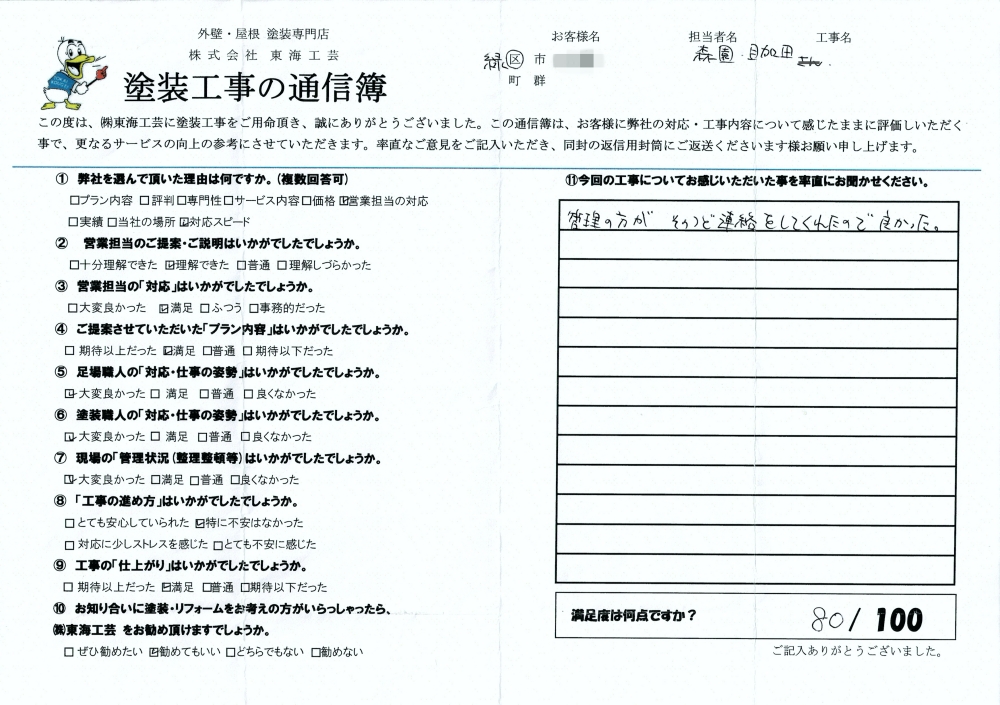 外壁・屋根 塗装専門店
株式会社 東海工芸
塗装工事の通信簿
お客様名 担当者名 工事名
緑区 市
町 群
森園・目加田
この度は、㈱東海工芸に塗装工事をご用命頂き、誠にありがとうございました。この通信簿は、お客様に弊社の対応・工事内容について感じたままに評価しいただく
事で、更なるサービスの向上の参考にさせていただきます。率直なご意見をご記入いただき、同封の返信用封筒にご返送くださいます様お願い申し上げます。
① 弊社を選んで頂いた理由は何ですか。(複数回答可)
□プラン内容 □評判□専門性□サービス内容□価格 ☑営業担当の対応
□実績 □当社の場所 ☑対応スピード
② 営業担当のご提案・ご説明はいかがでしたでしょうか。
□十分理解できた ☑理解できた □普通 □理解しづらかった
③ 営業担当の「対応」はいかがでしたでしょうか。
□大変良かった ☑満足 □ふつう □事務的だった
④ ご提案させていただいた「プラン内容」はいかがでしたでしょうか。
□ 期待以上だった ☑満足 □普通 □ 期待以下だった
⑤ 足場職人の「対応・仕事の姿勢」はいかがでしたでしょうか。
☑大変良かった □ 満足 □普通 □良くなかった
⑥ 塗装職人の「対応・仕事の姿勢」はいかがでしたでしょうか。
☑大変良かった □ 満足 □普通 □良くなかった
⑦ 現場の「管理状況(整理整頓等)はいかがでしたでしょうか。
☑大変良かった □満足 □普通 □良くなかった
⑧ 「工事の進め方」はいかがでしたでしょうか。
□とても安心していられた ☑特に不安はなかった
□ 対応に少しストレスを感じた □とても不安に感じた
⑨ 工事の「仕上がり」はいかがでしたでしょうか。
□ 期待以上だった ☑満足 □普通 □期待以下だった
⑩ お知り合いに塗装・リフォームをお考えの方がいらっしゃったら、
㈱東海工芸 をお勧め頂けますでしょうか。
□ぜひ勧めたい ☑勧めてもいい □どちらでもない □勧めない
⑪今回の工事についてお感じいただいた事を率直にお聞かせください。
管理の方が そのつど連絡をしてくれたので良かった。
満足度は何点ですか? 80/100
ご記入ありがとうございました。